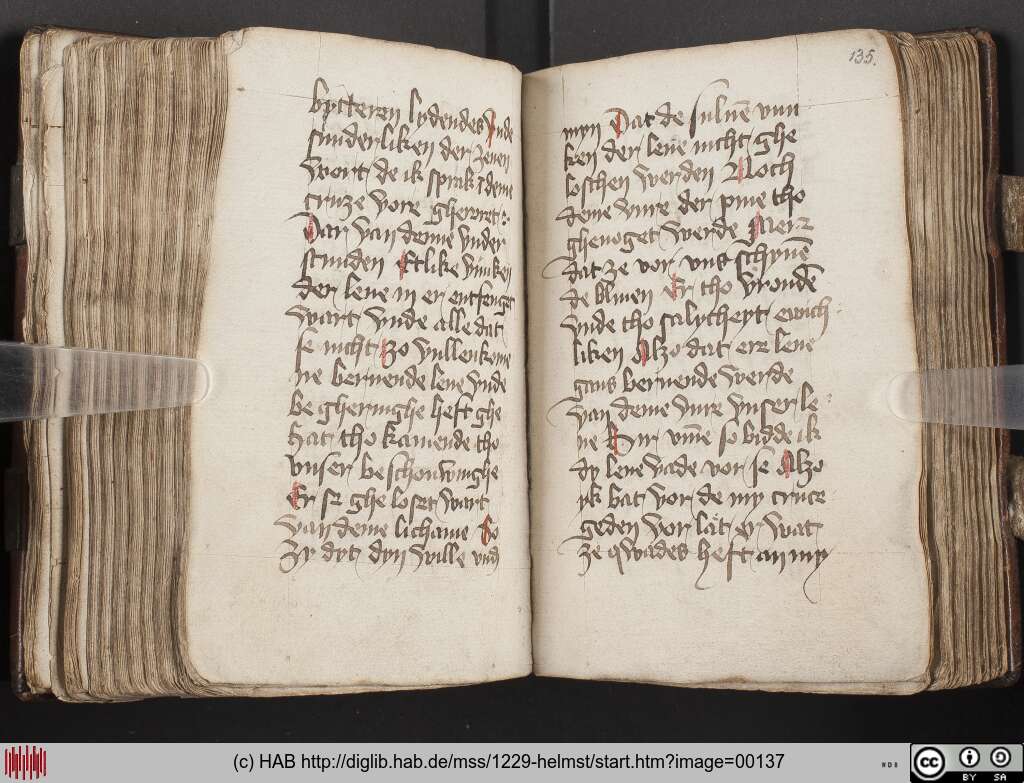 bytteren lydendes Vnde
sunderliken der zeuen
wort de ik sprak i deme
cruze vore gherort:
Dar van deme vnder
stunden Etlike vunken
der leue in er entfenget
wart vnde alle dat
se nicht zo vullenkome
ne bernende leue vnde
be gheringhe heft ghe
hat tho kamende tho
vnser beschouwinghe
Er se ghe loset wart
van deme lichame So
zy dyt dyn wille vnd
135.
myn Dat de suluē vun
ken der leue nicht ghe
loschen werden Noch
deme vure der pine tho
ghenoget werde Merz
dat ze vor vns schynē
de bliuen Er tho vrondē
vnde tho salycheyt ewich
liken Alzo dat erz leue
gans bernende werde
van deme vure vnser le
ue Hir vm̄e so bidde ik
dy leue vade vor se Alzo
yk bat vor de my cruce
geden vor lāt er wat
ze qwades heft an my
(c) HAB http://diglib.hab.de/mss/1229-helmst/start.htm?image=00137
WDB
cc BY SA